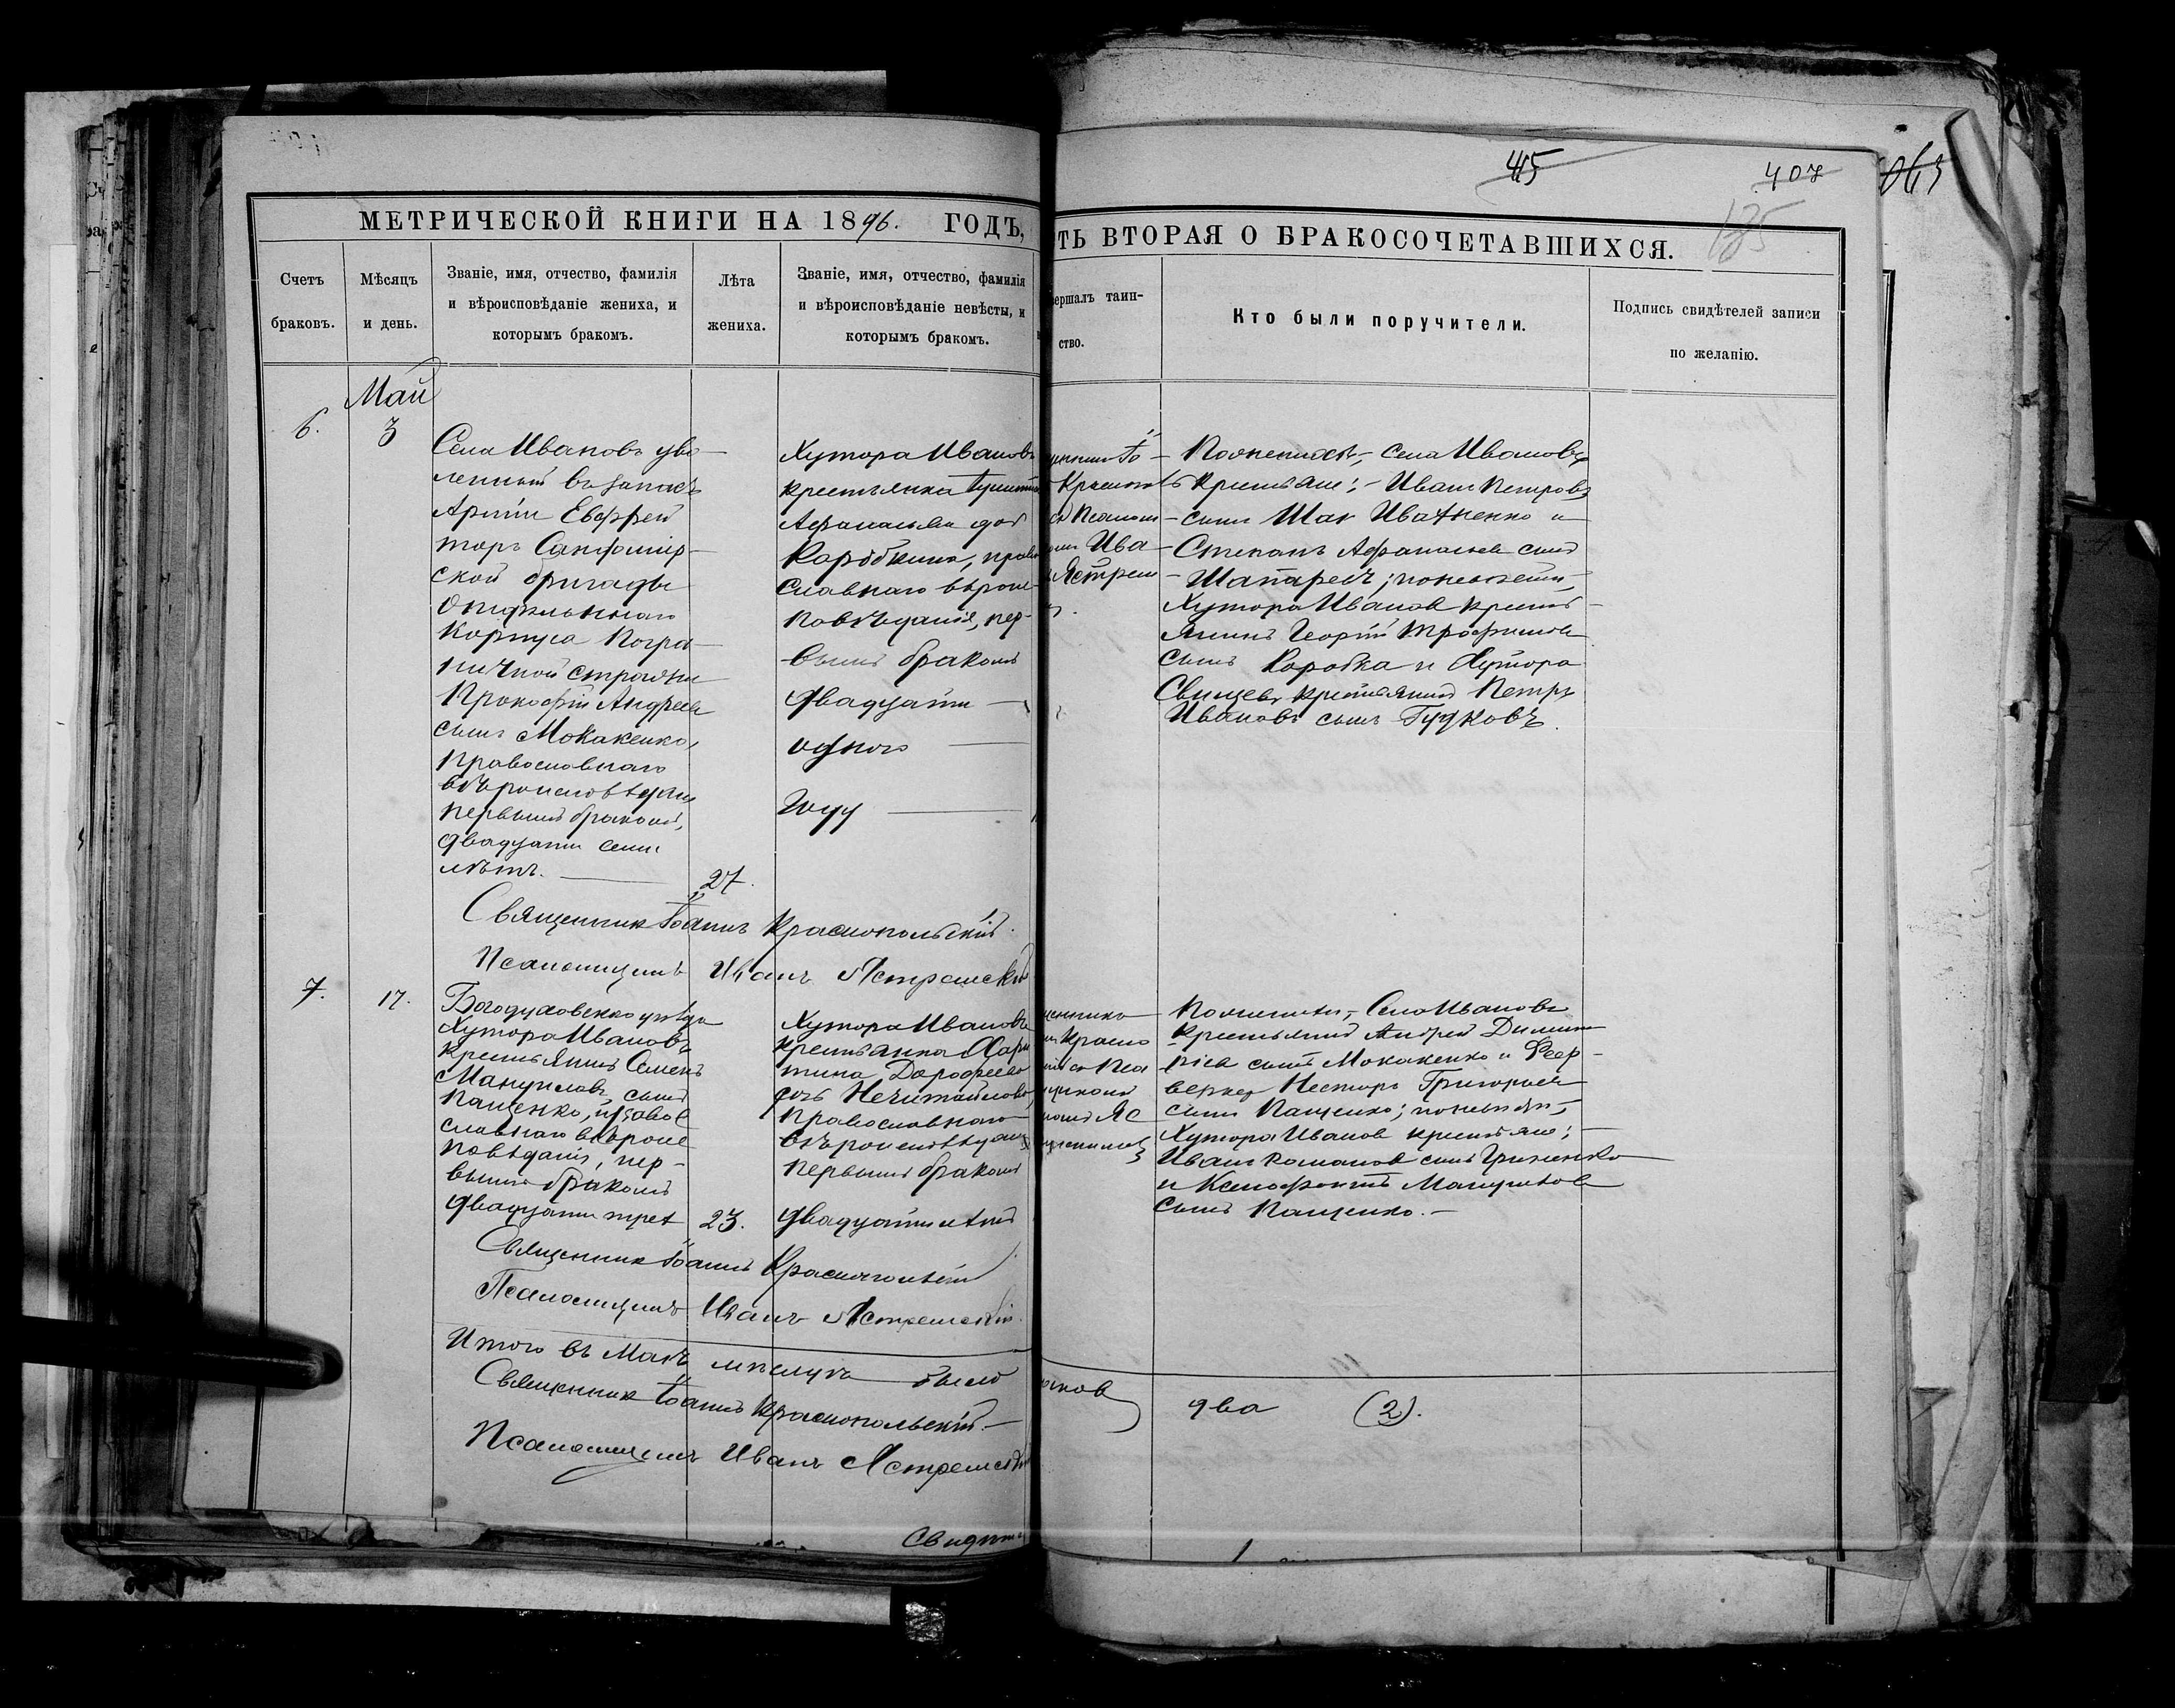 415
407
063
185
МЕТРИЧЕСКОЙ КНИГИ НА 1896. ГОДЪ,
ТЬ ВТОРАЯ О БРАКОСОЧЕТАВШИХСЯ.
Счетъ
браковъ.
Мѣсяцъ
и день.
Званіе, имя, отчество, фамилія
и вѣроисповѣданіе жениха, и
которымъ бракомъ.
Лѣта
жениха.
Званіе, имя, отчество, фамилія
и вѣроисповѣданіе невѣсты, и
которымъ бракомъ.
вершалъ таин-
ство.
Кто были поручители.
Подпись свидѣтелей записи
по желанію.
Май
6.
3
Села Ивановъ уво-
ленный въ запасъ
Арміи Евфрей
торъ
ской бригады
Отдѣльнаго
Корпуса Погра-
ничной стражи
Прокофій Андреев
сынъ Мокаkенко,
Православнаго
вѣроисповѣдан
первымъ бракомъ,
двадцати семи
лѣтъ.
27.
Хутора Иванов
крестьянка
Афанасьева доч
Коробкина, право
славнаго вѣроис-
повѣданія, пер-
вымъ бракомъ
двадцати
одного
году
Ива
Ястрем
По женихѣ, Села Ивановъ
крестьяне: Иванъ Петровъ
сынъ Шак Иваненко и
Степанъ Афанасьев сынъ
Шапарев; по невѣстѣ,
Хутора Иванов крестъ-
янинъ Георгій Трофимов
сынъ Коробка и Хутора
крестьянинъ Петръ
Ивановъ сынъ Гудковъ.
Священник Іоаннъ Краснопольскій.
Псаломщикъ Иванъ Ястремскій
7.
17.
Богодуховскаго уѣзда
Хутора Ивановъ
крестьянинъ Семенъ
Мануиловъ сынъ
Пащенко, правос
славнаго вѣроис
повѣданія, пер-
вымъ бракомъ
двадцати трех
23.
Хутора Ивановъ
крестьянка Хари
тина Дорофеева
дочь Нечитайлова,
православнаго
вѣроисповѣдан
первымъ бракомъ
двадцати лѣтъ
Красно
По женихѣ, Села Ивановъ
крестьянинъ Андрей Димит
ріев сынъ Мокаkенко и Феер-
веркер Нестор Григорьев
сынъ Пащенко; по невѣстѣ,
Хутора Иванов крестьяне;
Иванъ Романов сынъ Гриненко
и Ксенофонтъ Мануилов
сынъ Пащенко.
Священник Іоаннъ Краснопольскій
Псаломщикъ Иванъ Ястремскій
Итого въ Маѣ мѣсяцѣ было
два (2).
Священник Іоаннъ Краснопольскій.
Псаломщикъ Иванъ Ястремскій